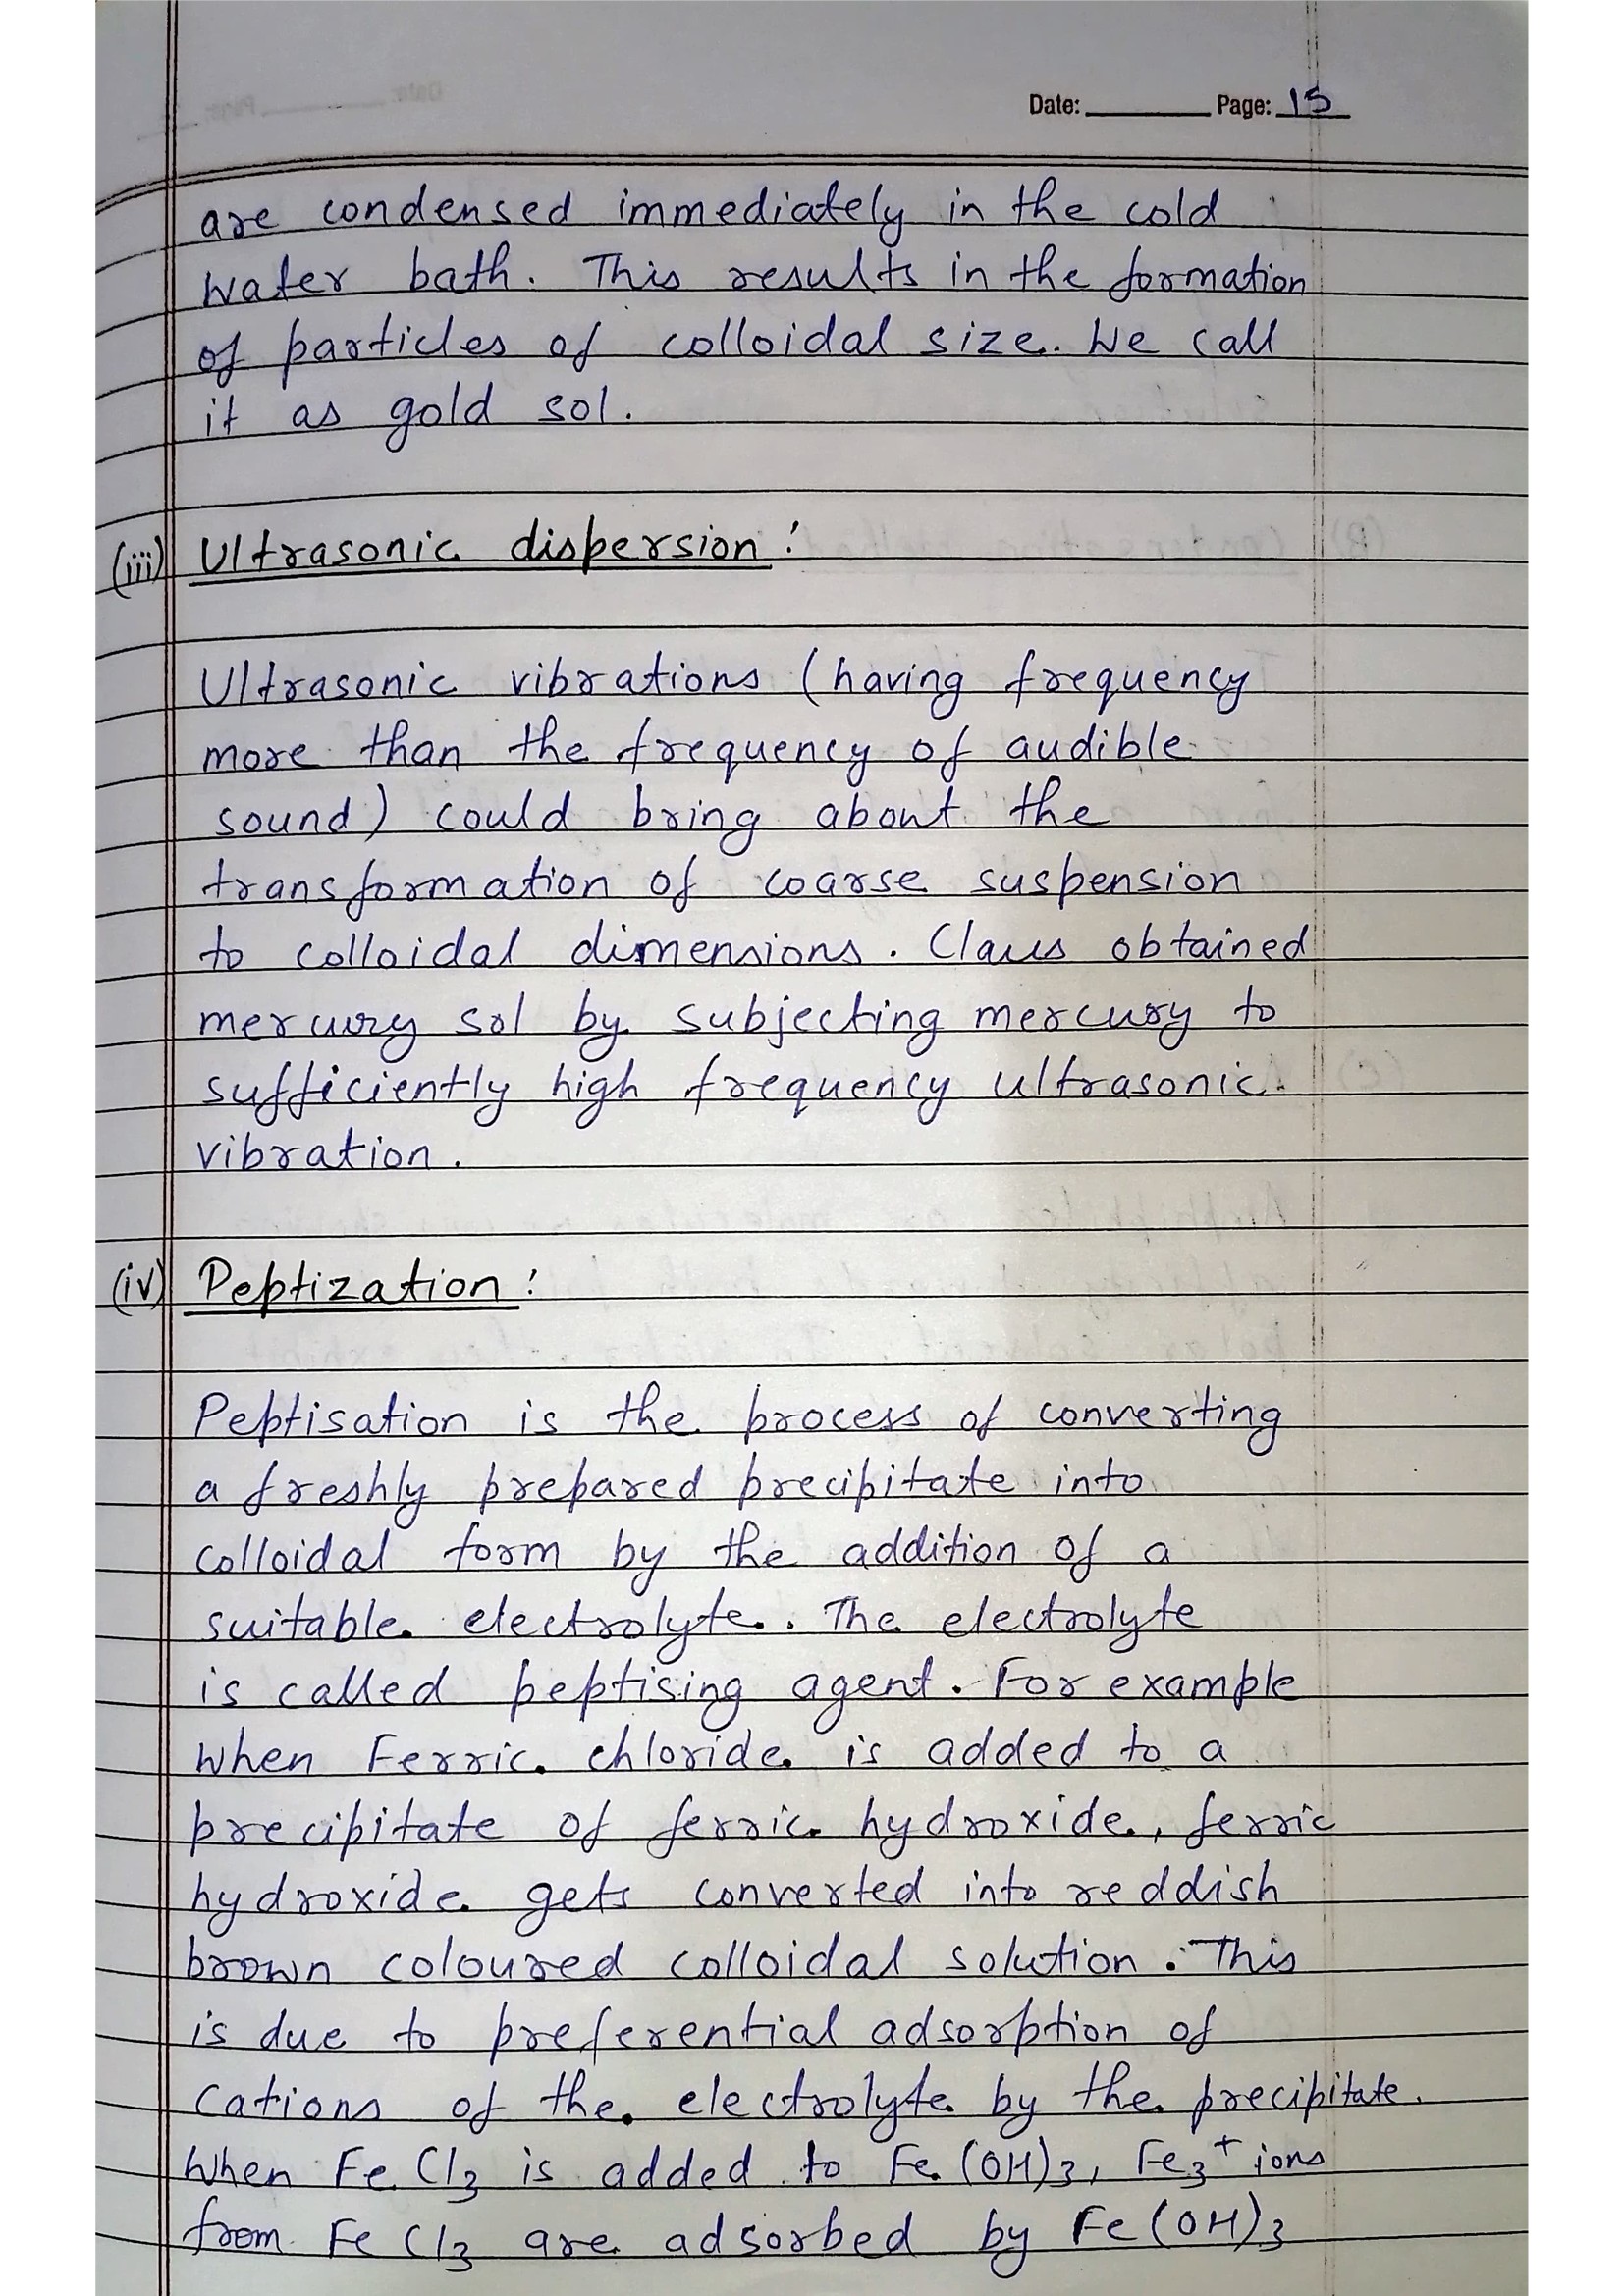 Date: Page: 15
are condensed immediately in the cold
water bath. This results in the formation
of particles of colloidal size. We call
it as gold sol.
(iii) Ultrasonic dispersion :
Ultrasonic vibrations (having frequency
more than the frequency of audible
sound) could bring about the
transformation of coarse suspension
to colloidal dimensions. Claus obtained
mercury sol by subjecting mercury to
sufficiently high frequency ultrasonic
vibration.
(iv) Peptization :
Peptisation is the process of converting
a freshly prepared precipitate into
colloidal form by the addition of a
suitable electrolyte. The electrolyte
is called peptising agent. For example
when Ferric chloride is added to a
precipitate of ferric hydroxide, ferric
hydroxide gets converted into reddish
brown coloured colloidal solution. This
is due to preferential adsorption of
cations of the electrolyte by the precipitate.
When FeCl3 is added to Fe(OH)3, Fe3+ ions
from FeCl3 are adsorbed by Fe(OH)3